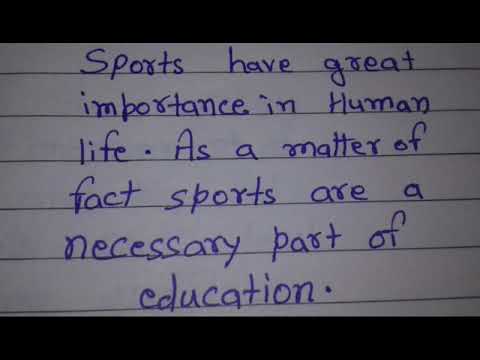 Sports have great
importance in Human
life. As a matter of
fact sports are a
necessary part of
education.